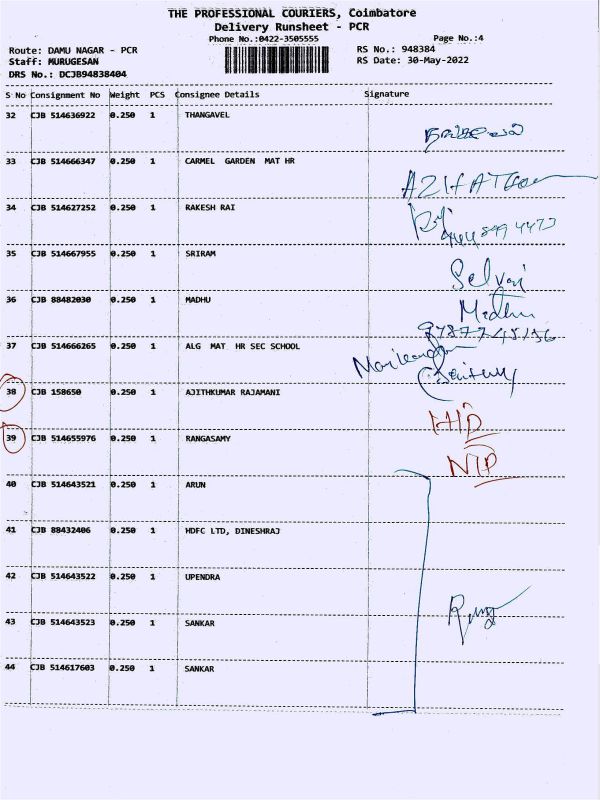 THE PROFESSIONAL COURIERS, Coimbatore
Delivery Runsheet - PCR
Phone No.:0422-3505555
Page No.:4
Route: DAMU NAGAR - PCR
RS No.: 948384
Staff: MURUGESAN
RS Date: 30-May-2022
DRS No.: DCJB94838404
S No Consignment No Weight PCS Consignee Details Signature
32 CJB 514636922 0.250 1 THANGAVEL
33 CJB 514666347 0.250 1 CARMEL GARDEN MAT HR
34 CJB 514627252 0.250 1 RAKESH RAI
35 CJB 514667955 0.250 1 SRIRAM
Selvai
36 CJB 88482030 0.250 1 MADHU
Madhu
37 CJB 514666265 0.250 1 ALG MAT HR SEC SCHOOL
38 CJB 158650 0.250 1 AJITHKUMAR RAJAMANI
39 CJB 514655976 0.250 1 RANGASAMY
NTP
40 CJB 514643521 0.250 1 ARUN
41 CJB 88432406 0.250 1 HDFC LTD, DINESHRAJ
42 CJB 514643522 0.250 1 UPENDRA
43 CJB 514643523 0.250 1 SANKAR
44 CJB 514617603 0.250 1 SANKAR